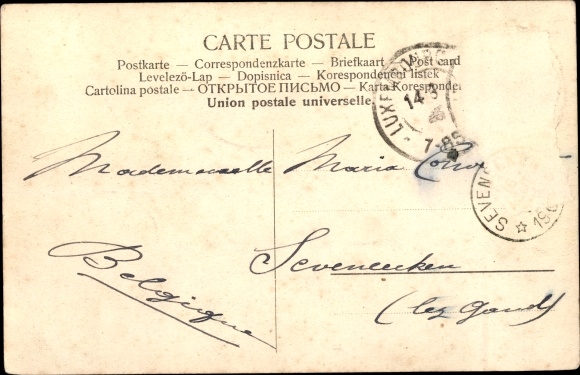 CARTE POSTALE
Postkarte — Correspondenzkarte — Briefkaart — Post card
Levelező-Lap — Dopisnica — Korespondenční lístek
Cartolina postale — ОТКРЫТОЕ ПИСЬМО — Karta Koresponde
Union postale universelle
LUXEMBOURG
14-3
7-8S
Mademoiselle Maria
SEVEN
190
Seveneecken
(lez Gand)
Belgique